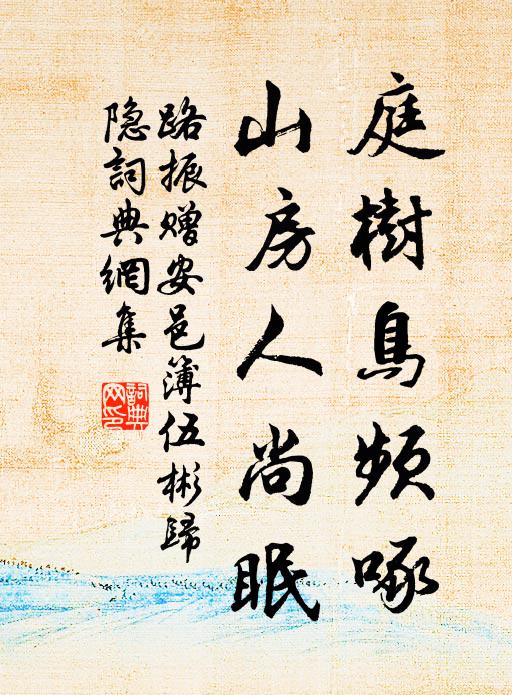 庭樹鳥頻啄
山房人尚眠
路振赠安邑簿伍彬歸
隐詞典網集
詞典
网印